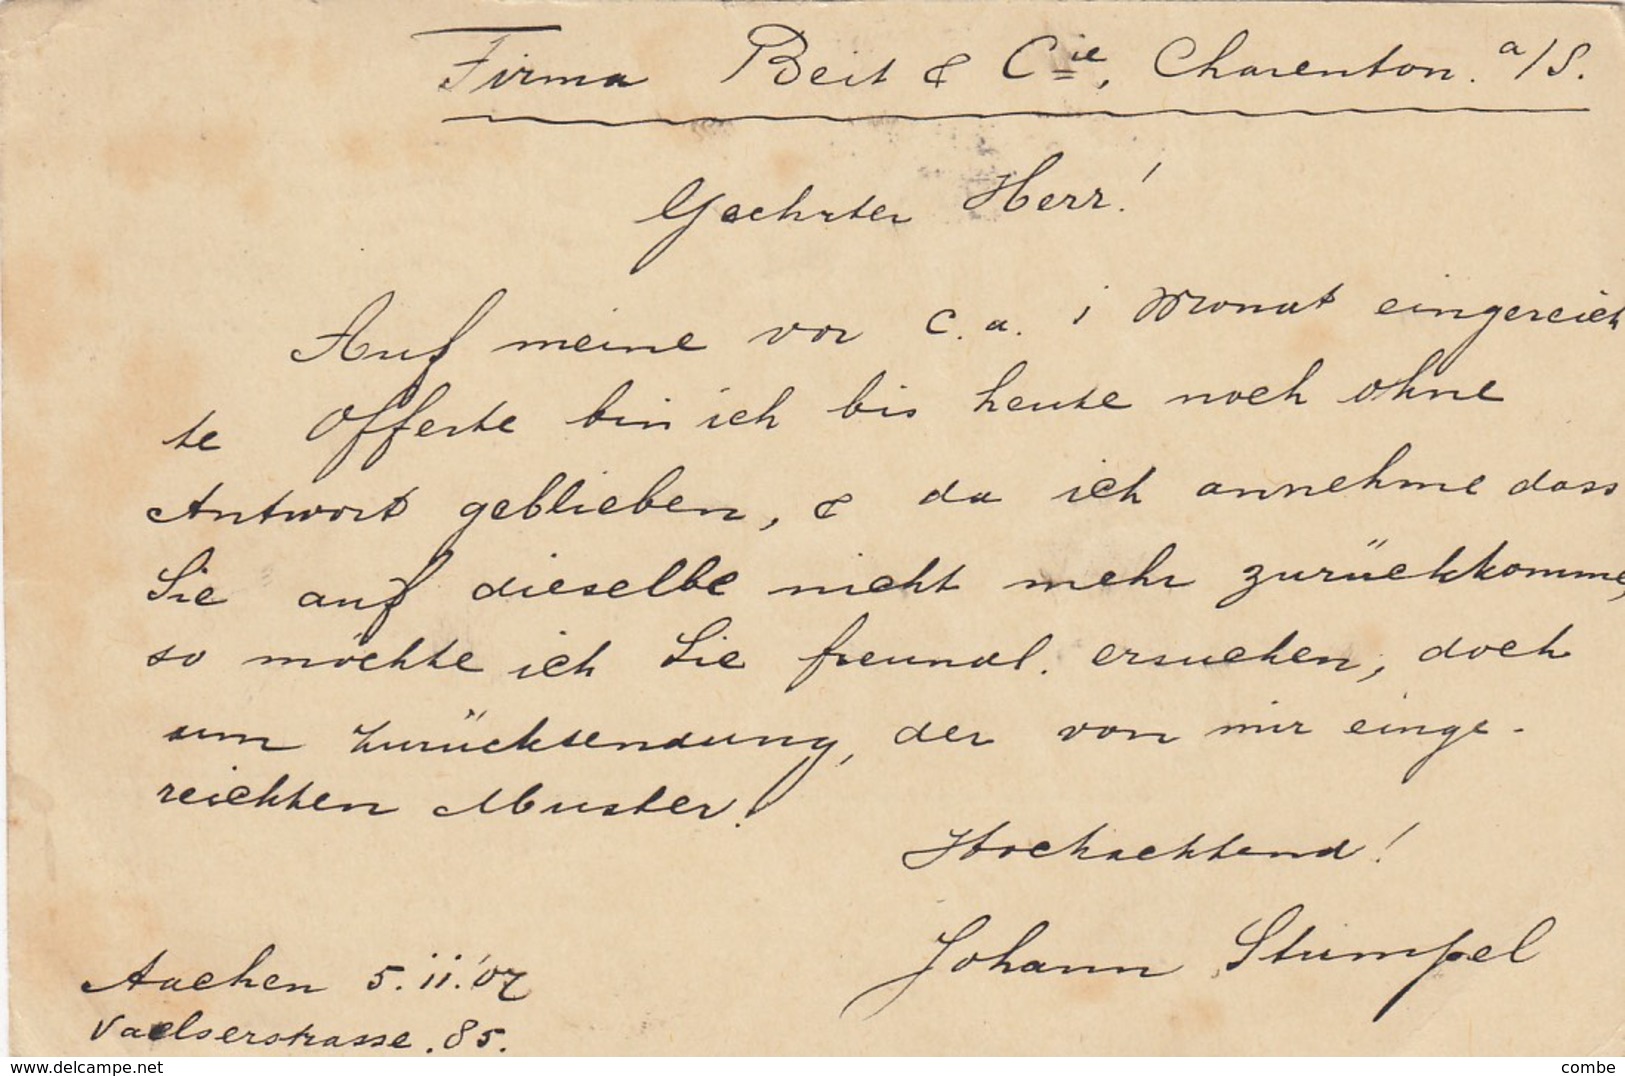 Firma Beit & Cie, Charenton. a/S.
Geehrter Herr!
Auf meine vor c.a. 1 Monat eingereich
te Offerte bin ich bis heute noch ohne
Antwort geblieben, & da ich annehme dass
Sie auf dieselbe nicht mehr zurückkomme,
so möchte ich Sie freundl. ersuchen, doch
um Zurücksendung, der von mir einge-
reichten Muster!
Hochachtend!
Johann Stümpel
Aachen 5.ii.'07
Vaelserstrasse. 85.
www.delcampe.net
combe